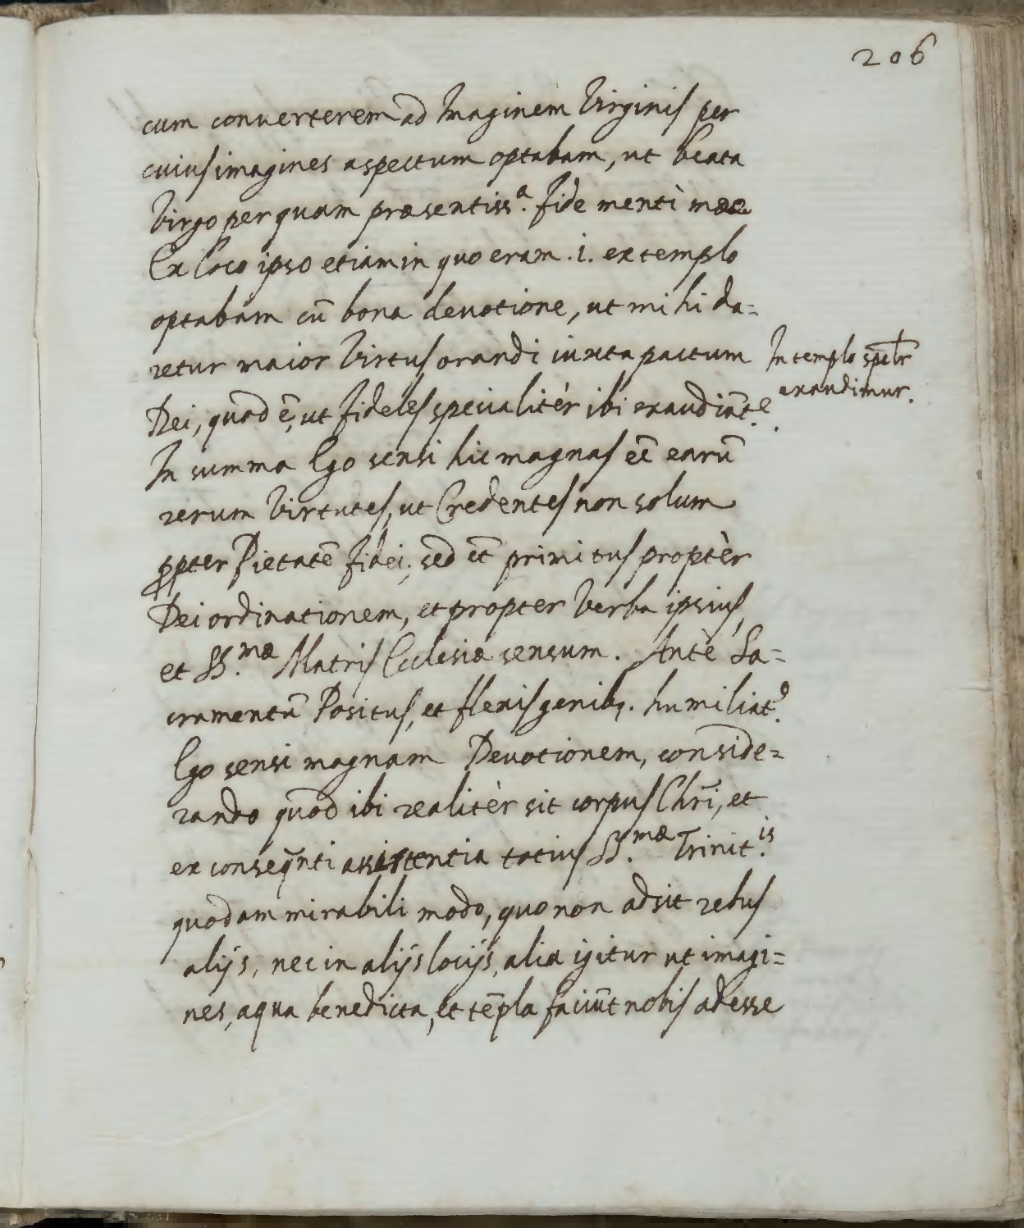 206
cum conuerterem ad Imaginem Virginis per
cuius imagines aspectum optabam, ut beata
Virgo per quam præsentiss.ª fide menti meæ
Ex loco ipso etiam in quo eram .i. ex templo
optabam cū bona deuotione, ut mihi da=
retur maior Virtus orandi iuxta pactum
Dei, quod ē, ut fideles specialitèr ibi exaudiāt.e
In templo spālr
exaudimur.
In summa Ego sensi hic magnas eē earū
rerum Virtutes, ut Credentes non solum
ppter Pietatē fidei, sed et̄ primitus proptèr
Dei ordinationem, et propter Verba ipsius,
et SS.mæ Matris Ecclesiæ sensum. Antè Sa=
cramentū Positus, et flexis genibq. humiliat.9
Ego sensi magnam Deuotionem, conside=
rando quod ibi realitèr sit corpus Chr̄i, et
ex conseq̄nti assistentia totius SS.mæ Trinit.is
quodam mirabili modo, quo non adsit rebus
alijs, nec in alijs locijs, alia igitur ut imagi=
nes, aqua benedicta, et tēpla faciūt nobis adesse